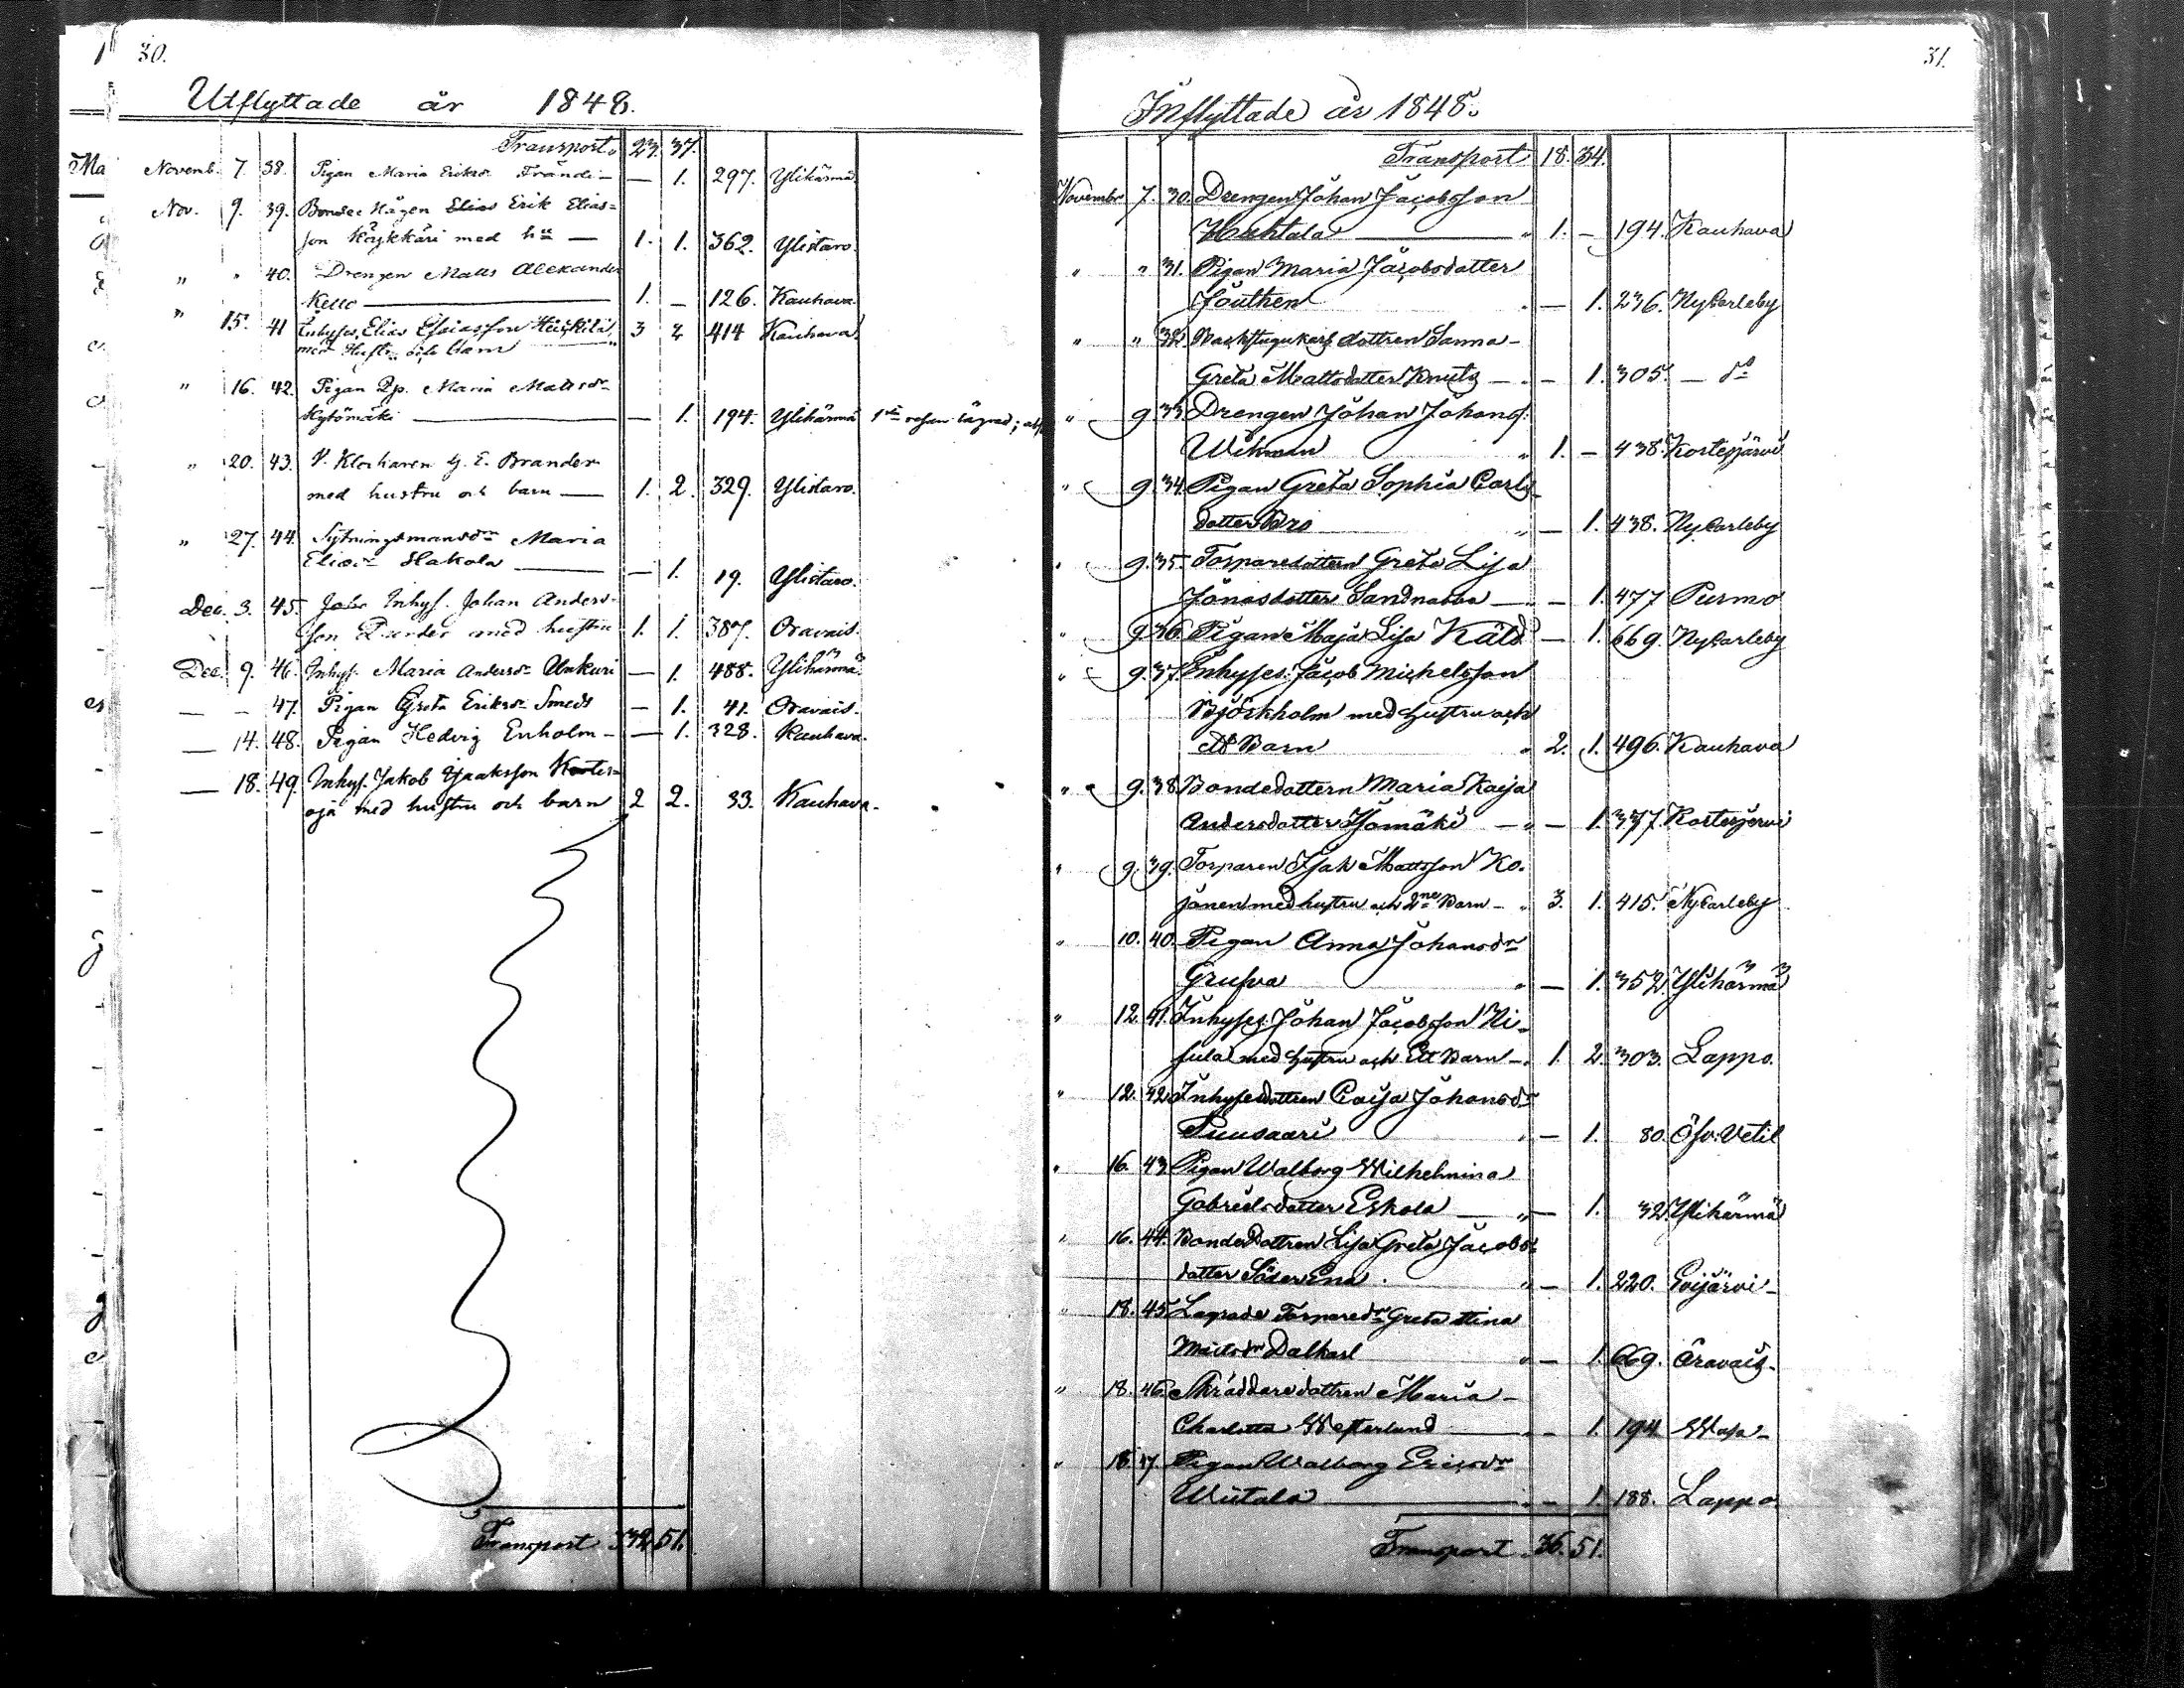 30.
Utflyttade år 1848.
Transport. 23. 37.
Novemb. 7. 38. Pigan Maria Eriksdr Frändi — — 1. 297. Ylihärmä
Nov. 9. 39. Bonde Mågen Elias Erik Elias-
son Köykkäri med hu — 1. 1. 362. Ylistaro.
" " 40. Drengen Matts Alexander
Kello — 1. — 126. Kauhava.
" 15. 41 Inhyses Elias Esiasson
med Hustru och barn 3 2 414 Kauhava
" 16. 42. Pigan Maria Mattsdr
Kytömäki — — 1. 194. Ylihärmä
" 20. 43. V. Klockaren G. E. Brander
med hustru och barn — 1. 2. 329. Ylistaro.
" 27. 44. Sytningsmansdr Maria
Eliasdr Hakola — — 1. 19. Ylistaro.
Dec. 3. 45. Inhys. Johan Anders-
son med hustru 1. 1. 387. Oravais.
Dec. 9. 46. Inhys. Maria Andersdr — 1. 488. Ylihärmä.
— — 47. Pigan Greta Eriksdr Smeds — 1. 41. Oravais.
— 14. 48. Pigan Hedvig Enholm — — 1. 328. Kauhava.
— 18. 49. Inhys. Jakob Isaaksson Kortes-
oja med hustru och barn 2 2. 33. Kauhava.
Transport 32. 51.
31.
Inflyttade år 1848.
Transport 18. 34.
Novembr 7. 30. Drengen Johan Jacobsson
Huhtala — " 1. — 194. Kauhava
" " 31. Pigan Maria Jacobsdatter
Jouthen " — 1. 236. NyCarleby
" " 32. Backstugukarls dottren Sanna
Greta Mattsdatter Knuts — — 1. 305. — do
" 9. 33. Drengen Johan Johans.
Wikman " 1. — 438. Kortesjärvi
" 9. 34. Pigan Greta Sophia Carls
datter Bro " — 1. 438. NyCarleby
" 9. 35. Torparedottern Greta Lisa
Jonasdotter Sandnabba — — 1. 477 Purmo
" 9. 36. Pigan Maja Lisa Käld — 1. 669. NyCarleby
" 9. 37. Inhyses Jacob Michelsson
Björkholm med hustru och
ett Barn " 2. 1. 496. Kauhava
" 9. 38. Bondedottern Maria Kaisa
Andersdotter — — 1. 377. Kortesjervi
" 9. 39. Torparen Isak Mattsson Ko-
jonen med hustru och 2ne Barn — 3. 1. 415. NyCarleby
" 10. 40. Pigan Anna Johansdr
Grufva " — 1. 352. Ylihärmä
" 12. 41. Inhyses Johan Jacobsson Ni-
sula med hustru och Ett Barn — 1. 2. 303. Lappo.
" 12. 42. Inhysesdottren Caisa Johansdr
Puusaari " — 1. 80. Öfv. Vetil
" 16. 43. Pigan Walborg Wilhelmina
Gabrielsdotter Eskola — " — 1. 32. Ylihärmä
" 16. 44. Bondedottren Lisa Greta Jacobs
dotter " — 1. 220. Evijärvi
" 18. 45. Lagrade Torparedr Greta Stina
Mattsdr Dalkarl " — 1. 669. Oravais.
" 18. 46. Skräddaredottren Maria
Charlotta Westerlund — — 1. 194 Wasa
" 18. 47. Pigan Walborg Ericsdr
Wiitala — — 1. 188. Lappo
Transport 36. 51.